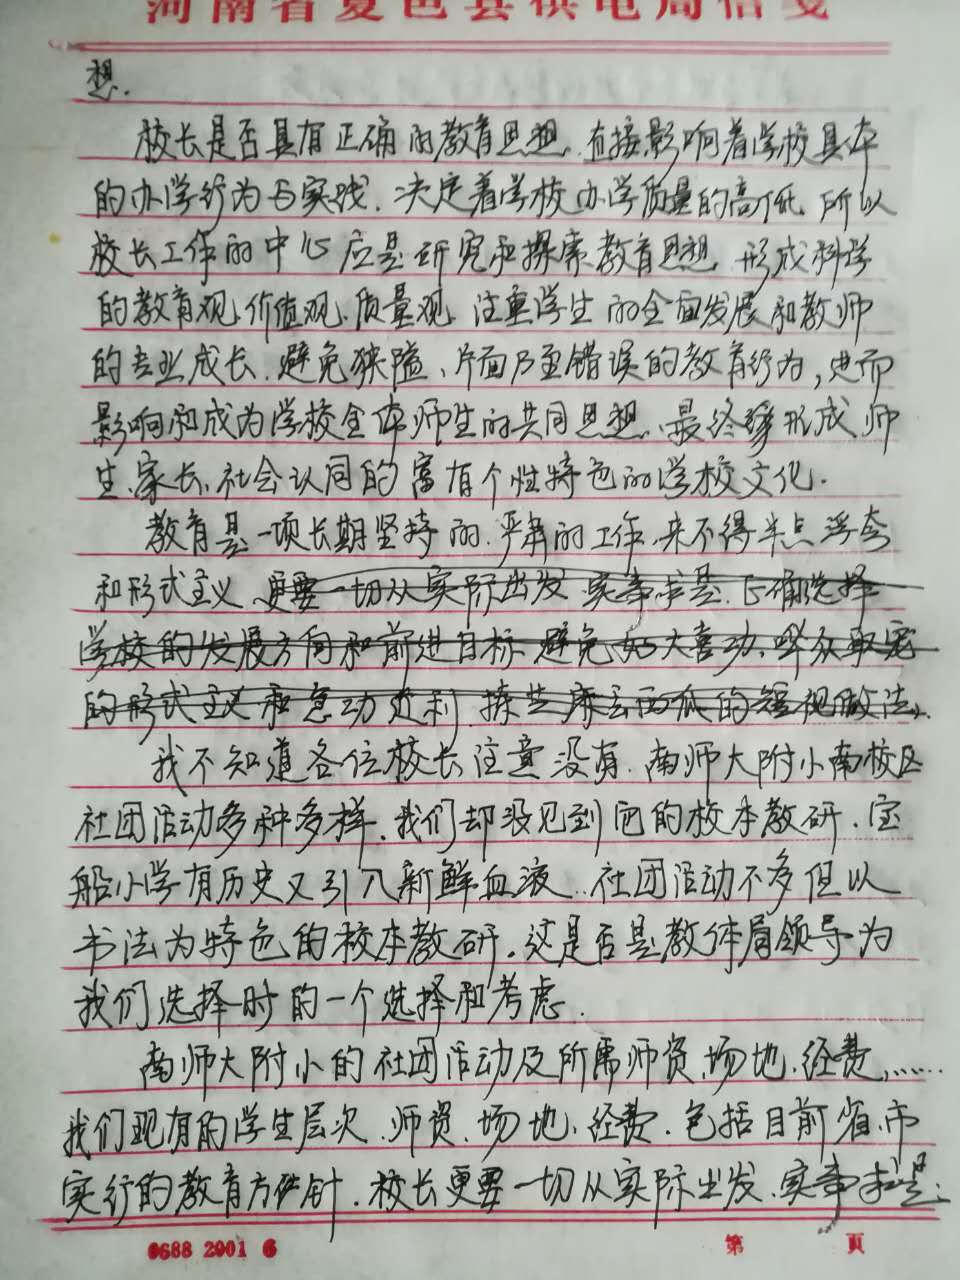 河南省夏邑县供电局信笺
想.
校长是否具有正确的教育思想,直接影响着学校具体
的办学行为与实践.决定着学校办学质量的高低.所以
校长工作的中心应是研究和探索教育思想,形成科学
的教育观、价值观、质量观,注重学生的全面发展和教师
的专业成长.避免狭隘、片面乃至错误的教育行为,进而
影响和成为学校全体师生的共同思想、最终形成师
生、家长、社会认同的富有个性特色的学校文化.
教育是一项长期坚持的、严肃的工作,来不得半点浮夸
和形式主义、更要一切从实际出发 实事求是.正确选择
学校的发展方向和前进目标 避免好大喜功、哗众取宠
的形式主义和急功近利、捡芝麻丢西瓜的短视做法.
我不知道各位校长注意没有.南师大附小南校区
社团活动多种多样.我们却没见到它的校本教研.宝
船小学有历史又引入新鲜血液..社团活动不多但以
书法为特色的校本教研.这是否是教体局领导为
我们选择时的一个选择和考虑.
南师大附小的社团活动及所需师资、场地、经费......
我们现有的学生层次、师资、场地、经费.包括目前省、市
实行的教育方针.校长更要一切从实际出发、实事求是.
0688 2001 6 第 页